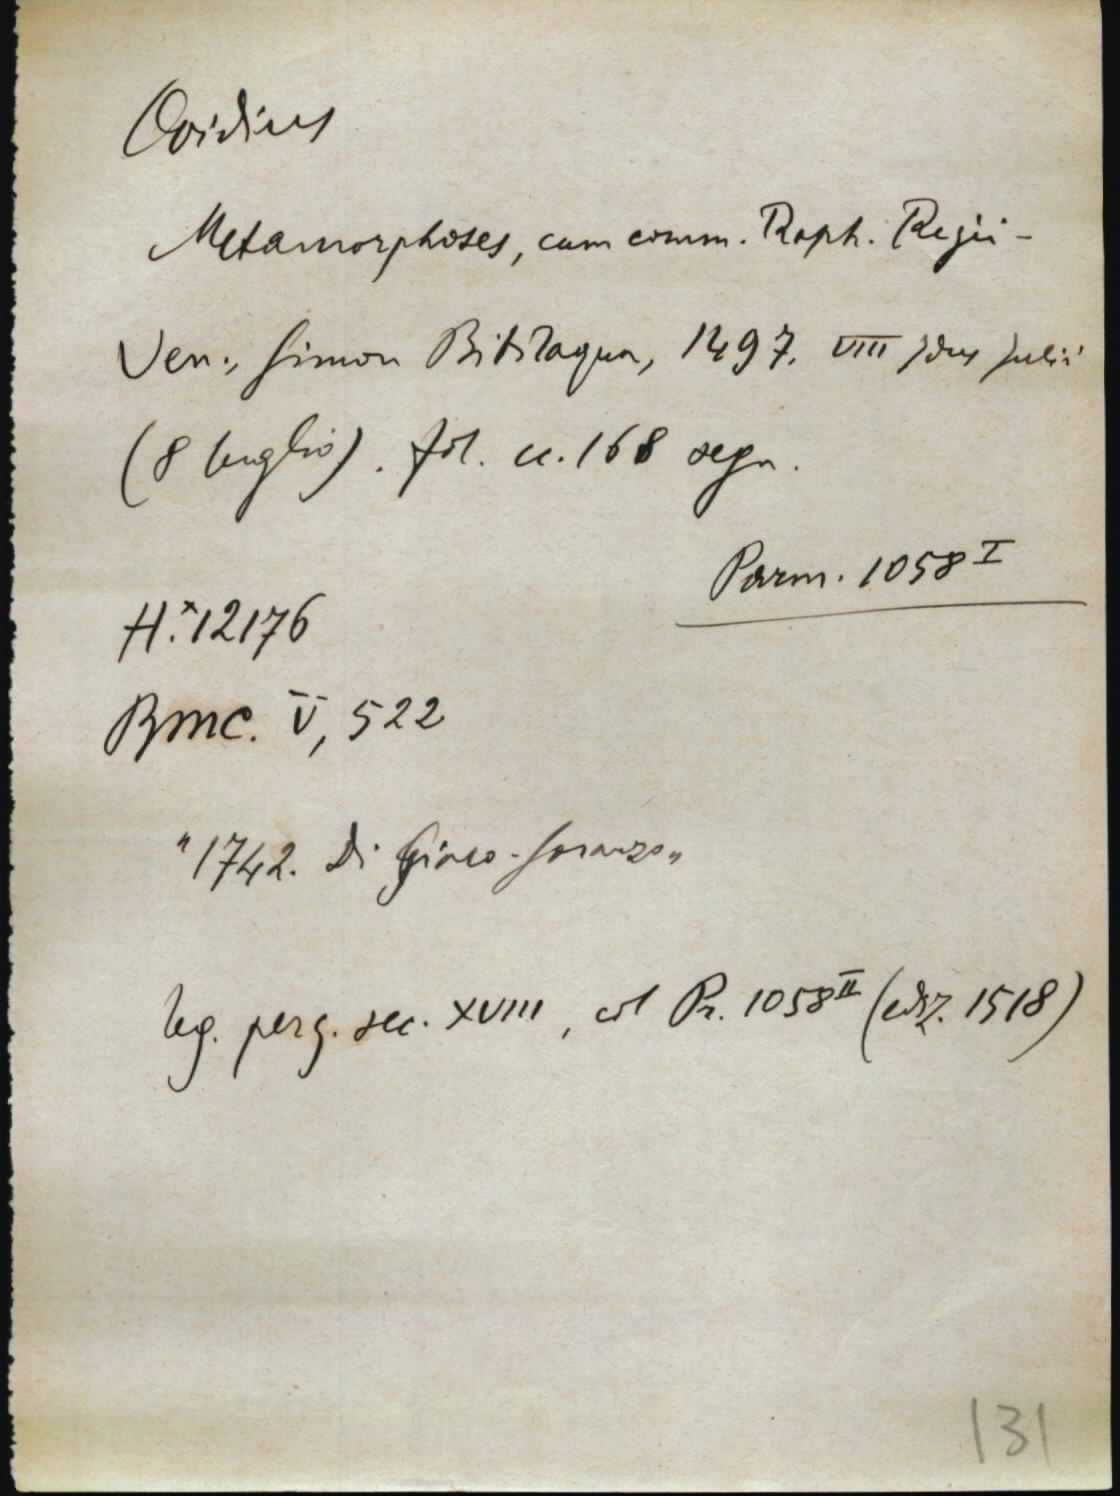 Ovidius
Metamorphoses, cum comm. Raph. Regii -
Ven., Simon Bibilaqua, 1497. VIII Idus Julii
(8 luglio). fol. cc. 168 segn.
Parm. 1058 I
H.* 12176
BMC. V, 522
"1742. Di Giaco. Soranzo"
leg. perg. sec. XVIII, col Pr. 1058 II (ediz. 1518)
131